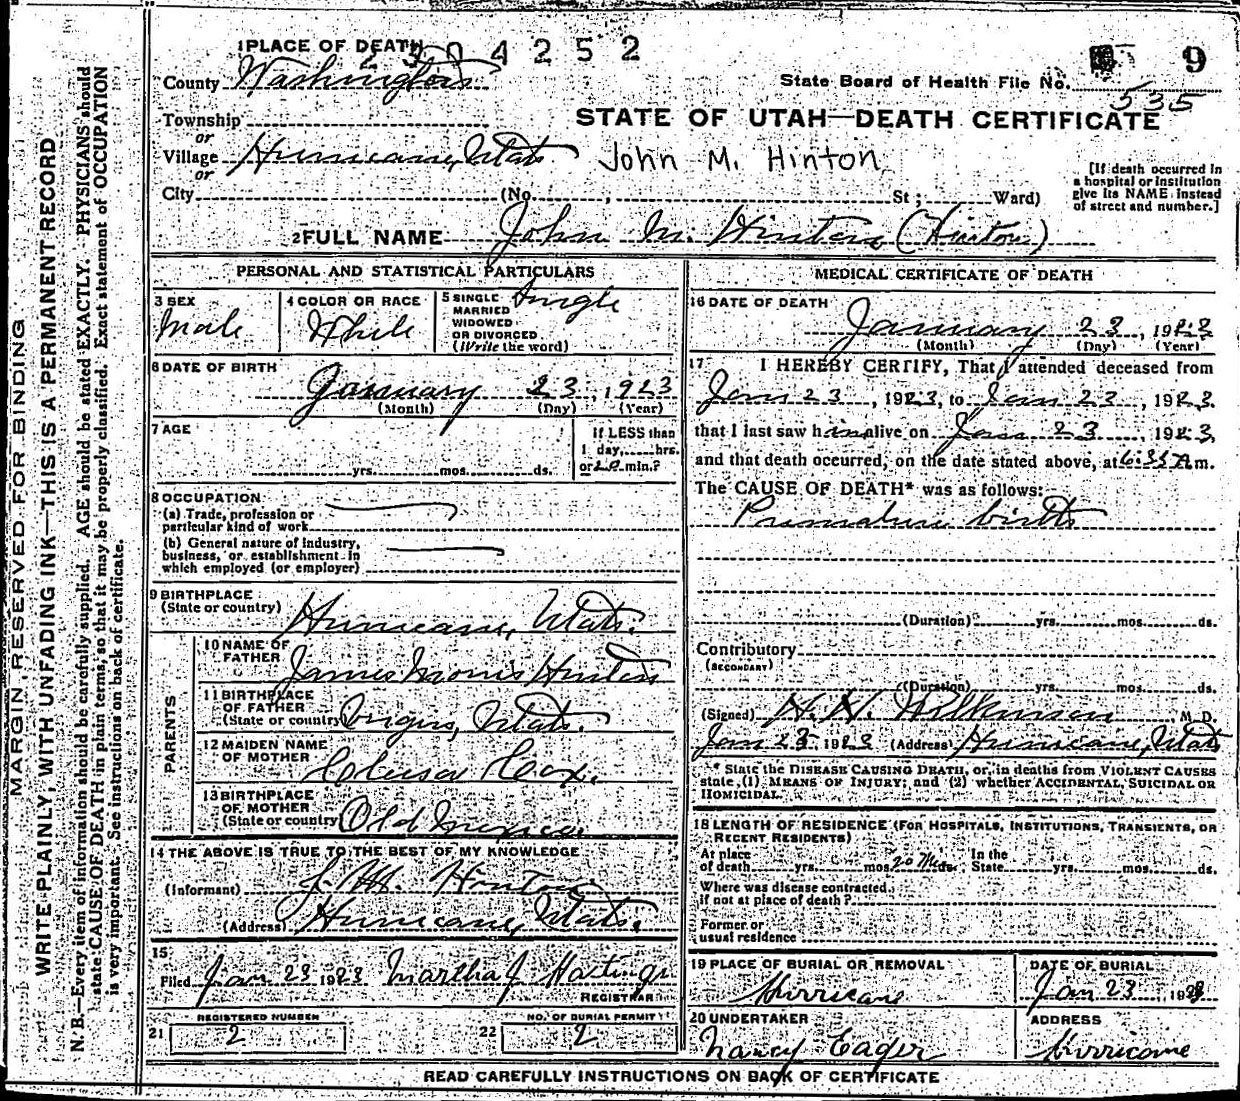 MARGIN RESERVED FOR BINDING
WRITE PLAINLY, WITH UNFADING INK—THIS IS A PERMANENT RECORD
N. B.—Every item of information should be carefully supplied. AGE should be stated EXACTLY. PHYSICIANS should
state CAUSE OF DEATH in plain terms, so that it may be properly classified. Exact statement of OCCUPATION
is very important. See instructions on back of certificate.
1 PLACE OF DEATH
2304252
9
County Washington
State Board of Health File No.
535
Township
STATE OF UTAH—DEATH CERTIFICATE
or
Village Hurricane, Utah
John M. Hinton
or
City (No. , St ; Ward)
[If death occurred in
a hospital or institution
give its NAME instead
of street and number.]
2 FULL NAME John M. Hinton (Hinton)
PERSONAL AND STATISTICAL PARTICULARS
3 SEX
Male
4 COLOR OR RACE
White
5 SINGLE
MARRIED
WIDOWED
OR DIVORCED
(Write the word)
Single
6 DATE OF BIRTH
January 23, 1923
(Month) (Day) (Year)
7 AGE
yrs. mos. ds.
If LESS than
1 day, hrs.
or 20 min.?
8 OCCUPATION
(a) Trade, profession or
particular kind of work
(b) General nature of industry,
business, or establishment in
which employed (or employer)
9 BIRTHPLACE
(State or country)
Hurricane, Utah.
PARENTS
10 NAME OF
FATHER
James Morris Hinton
11 BIRTHPLACE
OF FATHER
(State or country)
Virgin, Utah.
12 MAIDEN NAME
OF MOTHER
Cox.
13 BIRTHPLACE
OF MOTHER
(State or country)
Old Mexico.
14 THE ABOVE IS TRUE TO THE BEST OF MY KNOWLEDGE
(Informant) J. M. Hinton
(Address) Hurricane, Utah.
15
Filed Jan 23 1923 Martha J Hastings
REGISTRAR
REGISTERED NUMBER
21 2
NO. OF BURIAL PERMIT
22 2
MEDICAL CERTIFICATE OF DEATH
16 DATE OF DEATH
January 23, 1923
(Month) (Day) (Year)
17 I HEREBY CERTIFY, That I attended deceased from
Jan 23, 1923, to Jan 23, 1923.
that I last saw him alive on Jan 23, 1923,
and that death occurred, on the date stated above, at 6:35 A m.
The CAUSE OF DEATH* was as follows:
Premature birth
(Duration) yrs. mos. ds.
Contributory
(SECONDARY)
(Duration) yrs. mos. ds.
(Signed) Wilkinson, M. D.
Jan 23, 1923 (Address) Hurricane, Utah
* State the DISEASE CAUSING DEATH, or, in deaths from VIOLENT CAUSES
state (1) MEANS OF INJURY; and (2) whether ACCIDENTAL, SUICIDAL OR
HOMICIDAL.
18 LENGTH OF RESIDENCE (FOR HOSPITALS, INSTITUTIONS, TRANSIENTS, OR
RECENT RESIDENTS)
At place
of death yrs. mos. 20 min.
In the
State yrs. mos. ds.
Where was disease contracted,
if not at place of death?
Former or
usual residence
19 PLACE OF BURIAL OR REMOVAL
Hurricane
DATE OF BURIAL
Jan 23, 1923
20 UNDERTAKER
Nancy Eager
ADDRESS
Hurricane
READ CAREFULLY INSTRUCTIONS ON BACK OF CERTIFICATE